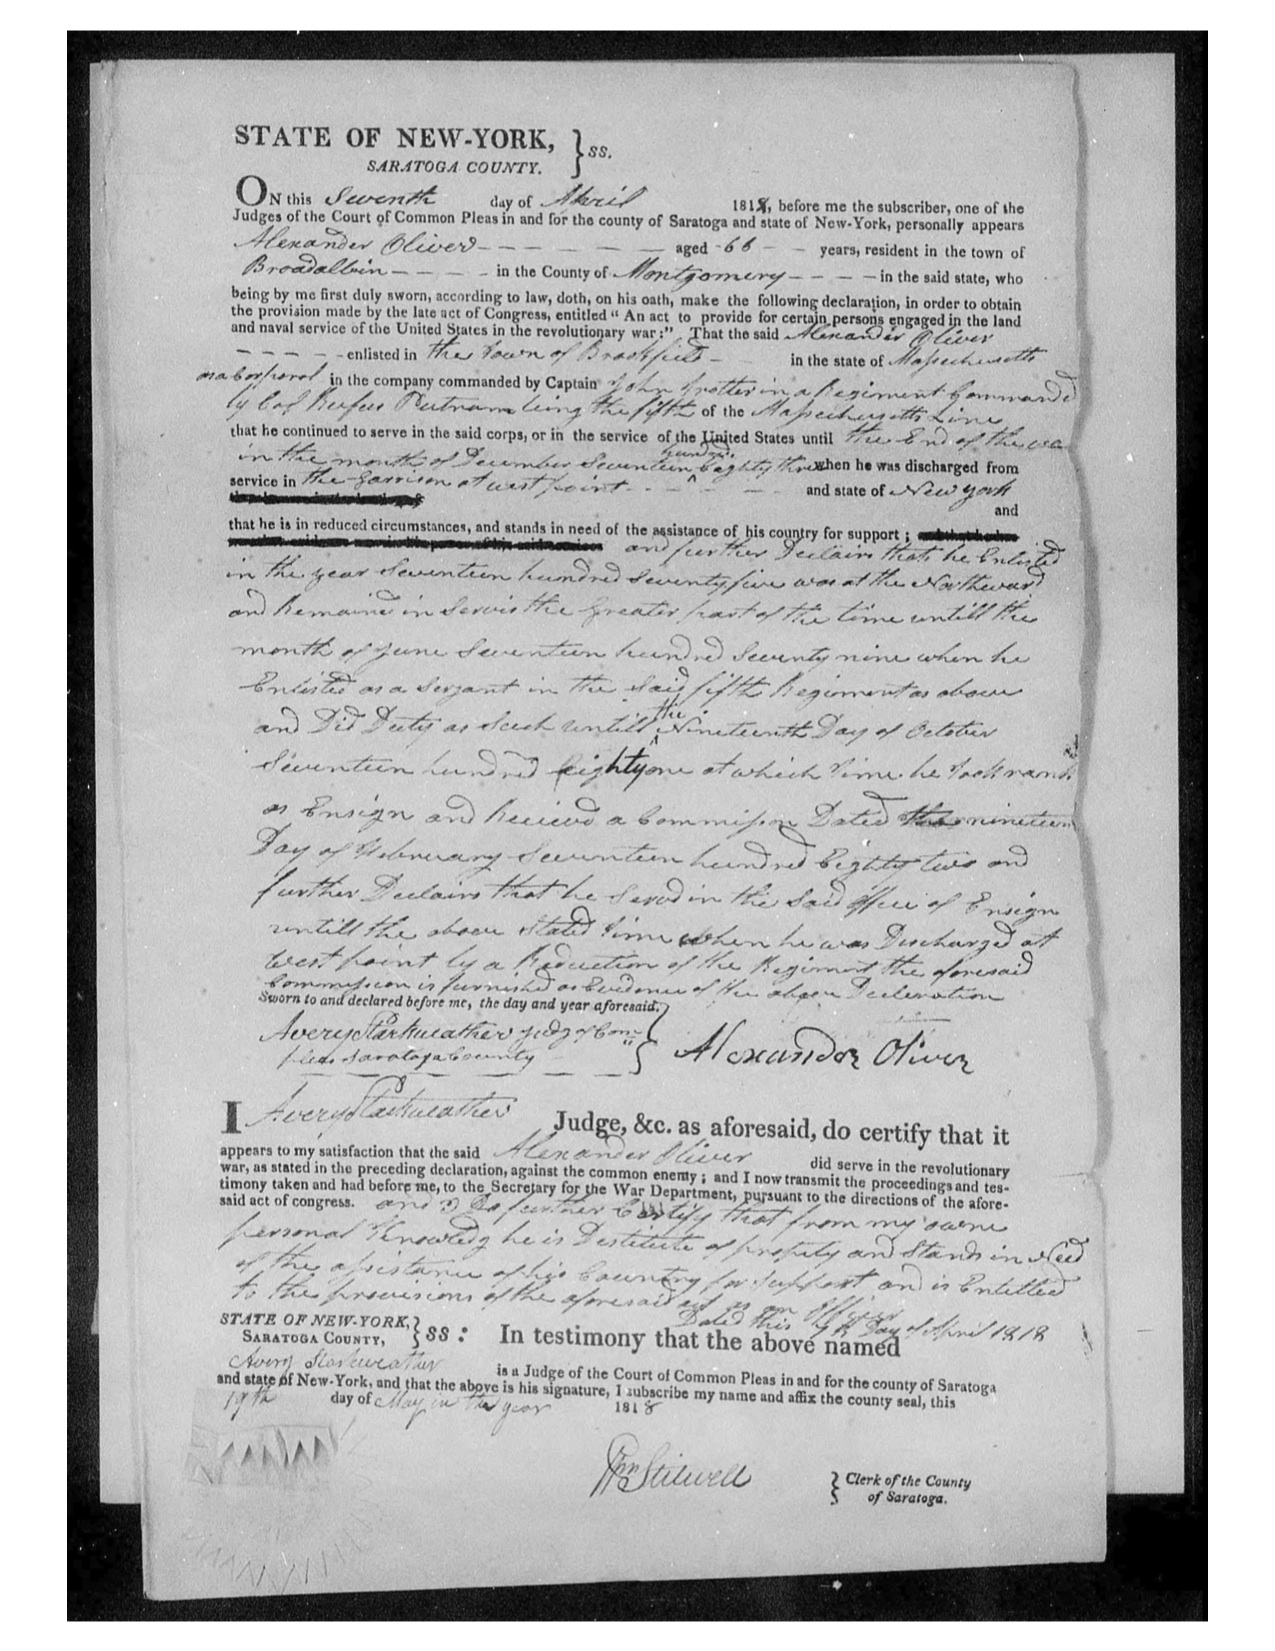 STATE OF NEW-YORK, } ss.
SARATOGA COUNTY.
ON this Seventh day of April 1818, before me the subscriber, one of the
Judges of the Court of Common Pleas in and for the county of Saratoga and state of New-York, personally appears
Alexander Oliver - - - - - - aged - 66 - - years, resident in the town of
Broadalbin - - - - in the County of Montgomery - - - - in the said state, who
being by me first duly sworn, according to law, doth, on his oath, make the following declaration, in order to obtain
the provision made by the late act of Congress, entitled "An act to provide for certain persons engaged in the land
and naval service of the United States in the revolutionary war:" That the said Alexander Oliver
- - - - - enlisted in the Town of Brookfield - in the state of Massachusetts
as a Corporal in the company commanded by Captain John Trotter in a Regiment Commanded
by Col Rufus Putnam being the fifth of the Massachusetts Line
that he continued to serve in the said corps, or in the service of the United States until the End of the war
in the month of December Seventeen hundred Eighty three when he was discharged from
service in the Garrison at west point - - - - and state of New york
and
that he is in reduced circumstances, and stands in need of the assistance of his country for support ;
and further Declairs that he Enlisted
in the year Seventeen hundred Seventy five was at the Northward
and Remained in Servis the Greater part of the time untill the
month of June Seventeen hundred Seventy nine when he
Enlisted as a Serjant in the Said fifth Regiment as above
and Did Duty as Such untill the Nineteenth Day of October
Seventeen hundred Eighty one at which time he took rank
as Ensign and Recieved a Commission Dated nineteen
Day of February Seventeen hundred Eighty two and
further Declairs that he Served in the Said office of Ensign
untill the above Stated time when he was Discharged at
West point by a Reduction of the Regiment the aforesaid
Commission is furnished as Evidence of the above Declaration
Sworn to and declared before me, the day and year aforesaid. }
Avery Starkweather Judg of Com
pleas Saratoga County - }
Alexander Oliver
I Avery Starkweather Judge, &c. as aforesaid, do certify that it
appears to my satisfaction that the said Alexander Oliver did serve in the revolutionary
war, as stated in the preceding declaration, against the common enemy ; and I now transmit the proceedings and tes-
timony taken and had before me, to the Secretary for the War Department, pursuant to the directions of the afore-
said act of congress. and I Do further Certify that from my owne
personal Knowledg he is Destitute of propety and Stands in Need
of the assistance of his Country for Support and is Entitled
to the provisions of the aforesaid act as an officer
Dated this 7th Day of April 1818
STATE OF NEW-YORK, } ss :
SARATOGA COUNTY,
In testimony that the above named
Avery Starkweather is a Judge of the Court of Common Pleas in and for the county of Saratoga
and state of New-York, and that the above is his signature, I subscribe my name and affix the county seal, this
19th day of May in the year 1818
Wm Stilwell
} Clerk of the County
of Saratoga.